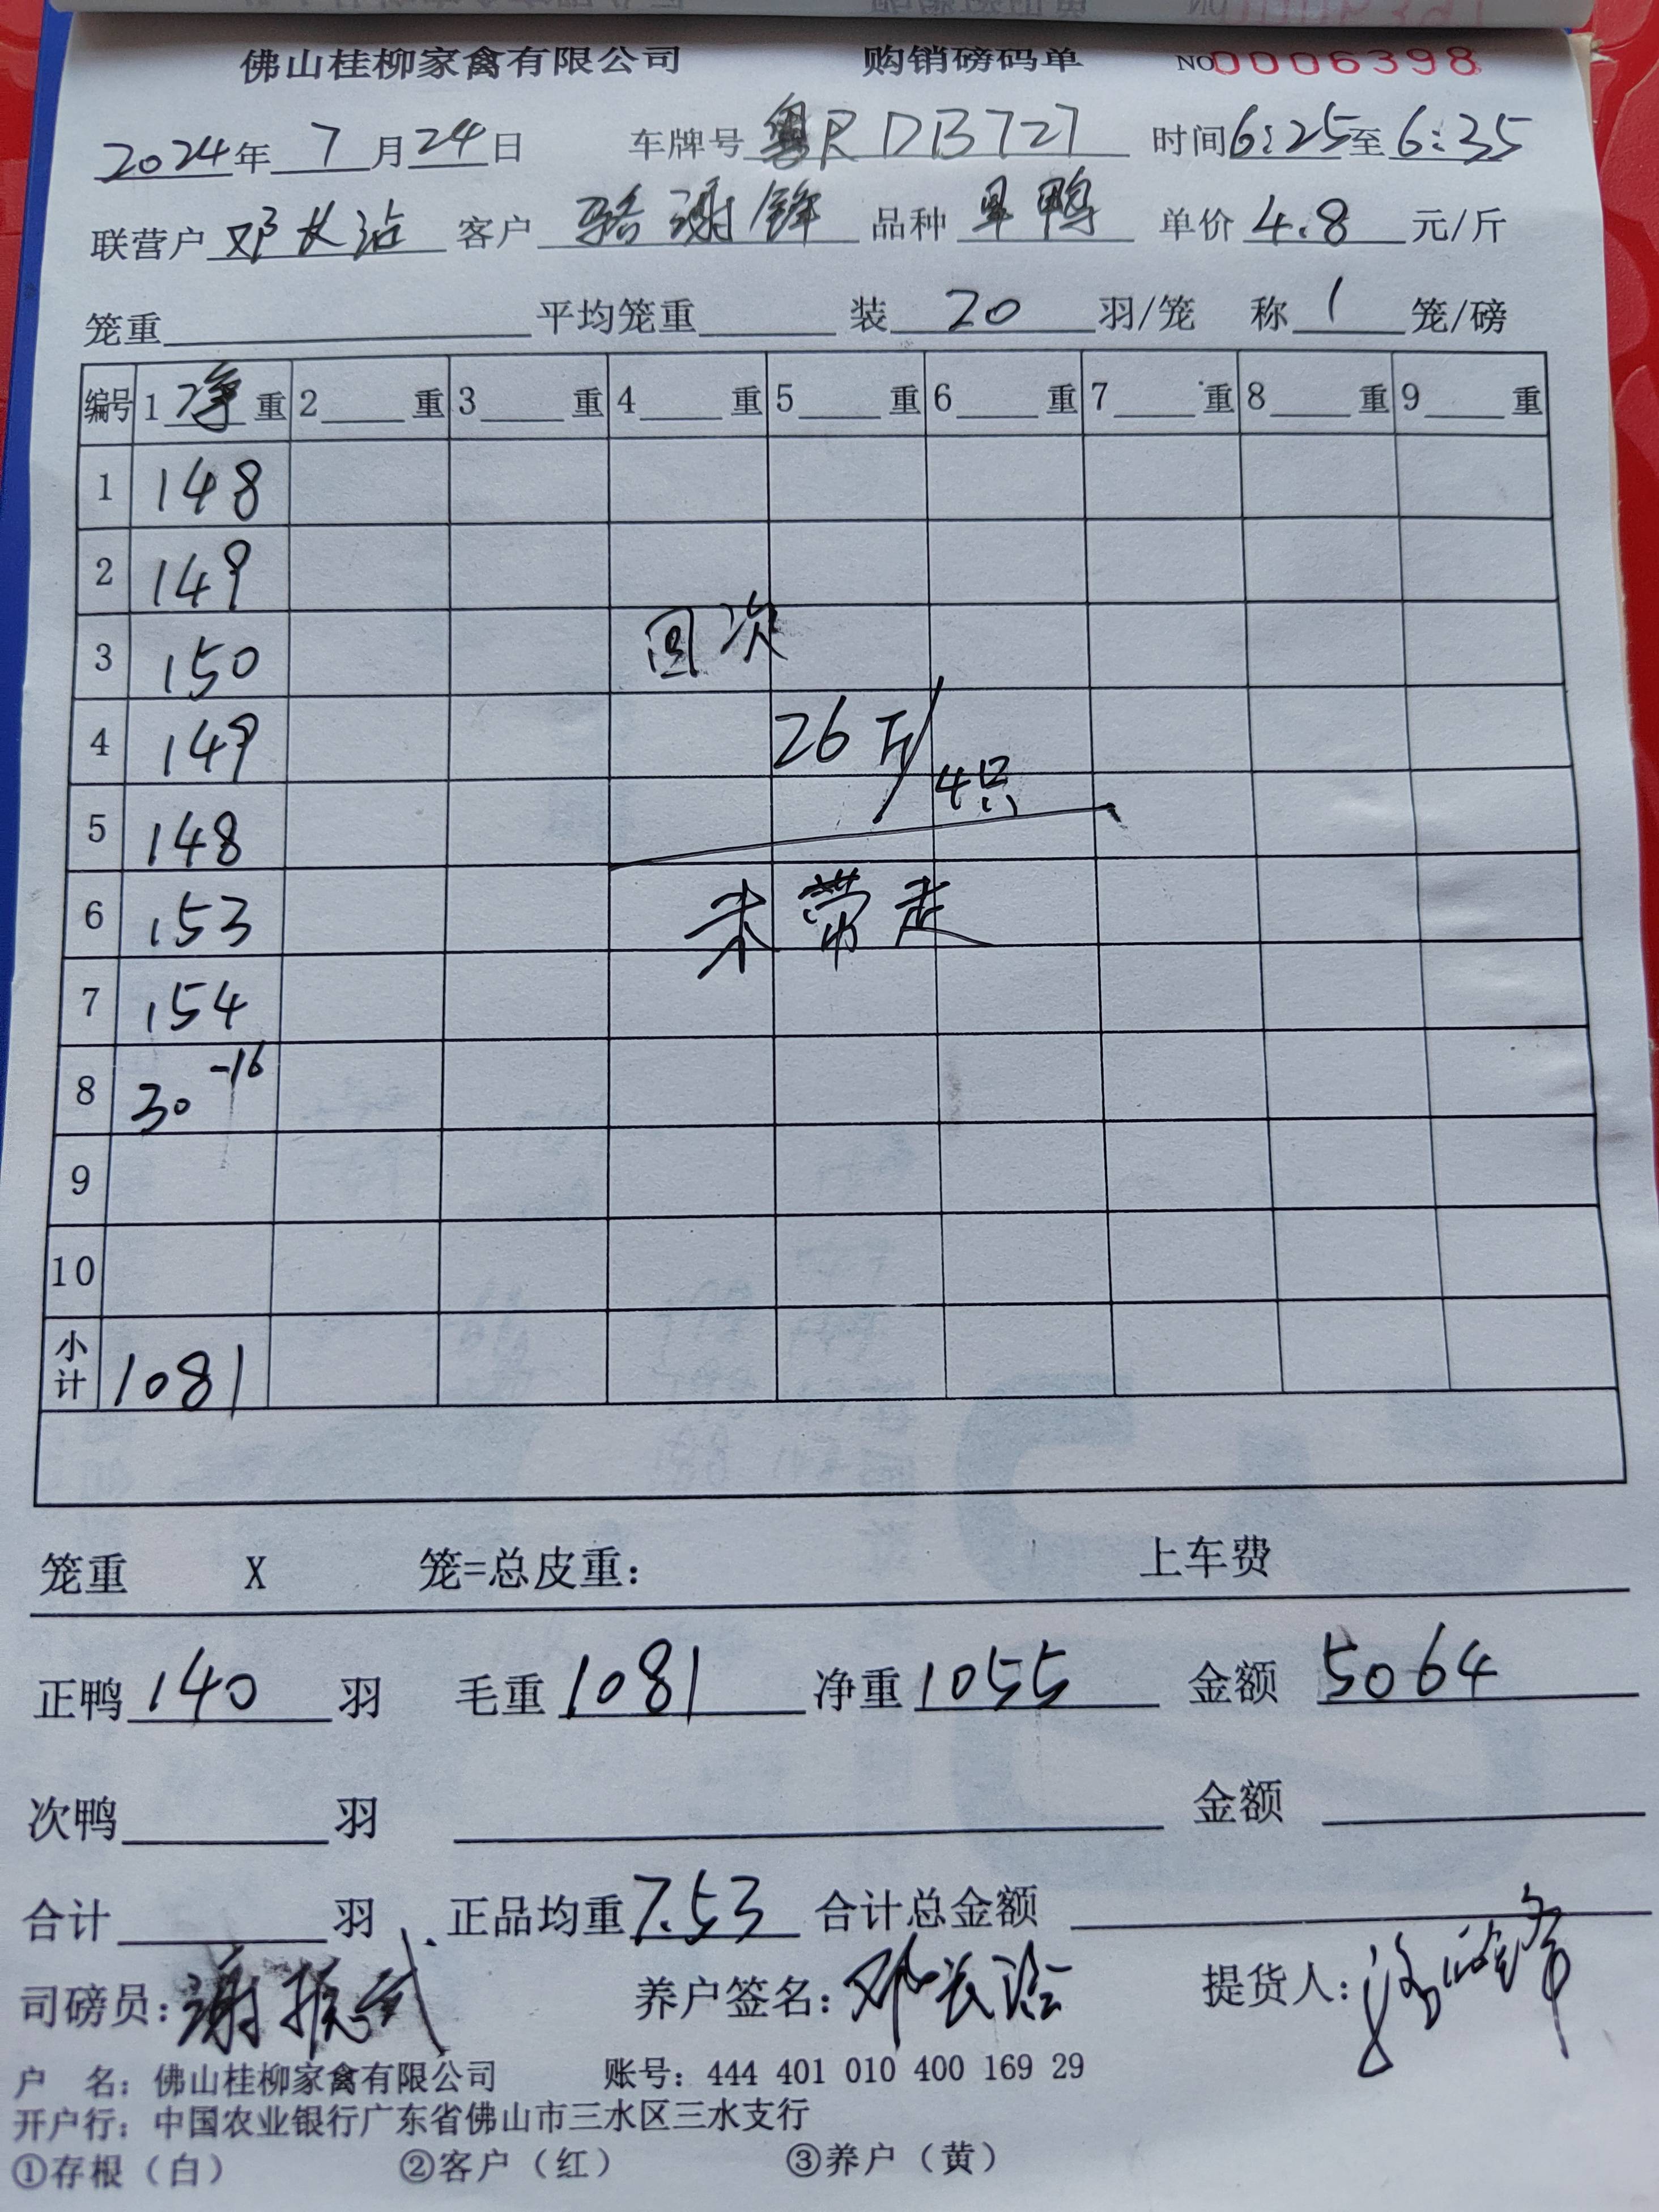 佛山桂柳家禽有限公司 购销磅码单 NO0006398
2024年 7月24日 车牌号 粤R DB727 时间6:25至6:35
联营户 邓长沾 客户 骆谢锋 品种 旱鸭 单价 4.8 元/斤
笼重 平均笼重 装 20 羽/笼 称 1 笼/磅
编号 1 净 重 2 重 3 重 4 重 5 重 6 重 7 重 8 重 9 重
1 148
2 149
3 150 回次
4 149 26斤/4只
5 148
6 153 未带走
7 154
8 30 -16
9
10
小计 1081
笼重 X 笼=总皮重: 上车费
正鸭 140 羽 毛重 1081 净重 1055 金额 5064
次鸭 羽 金额
合计 羽 正品均重 7.53 合计总金额
司磅员: 谢振武 养户签名: 邓长沾 提货人:
户 名: 佛山桂柳家禽有限公司 账号: 444 401 010 400 169 29
开户行: 中国农业银行广东省佛山市三水区三水支行
①存根(白) ②客户(红) ③养户(黄)